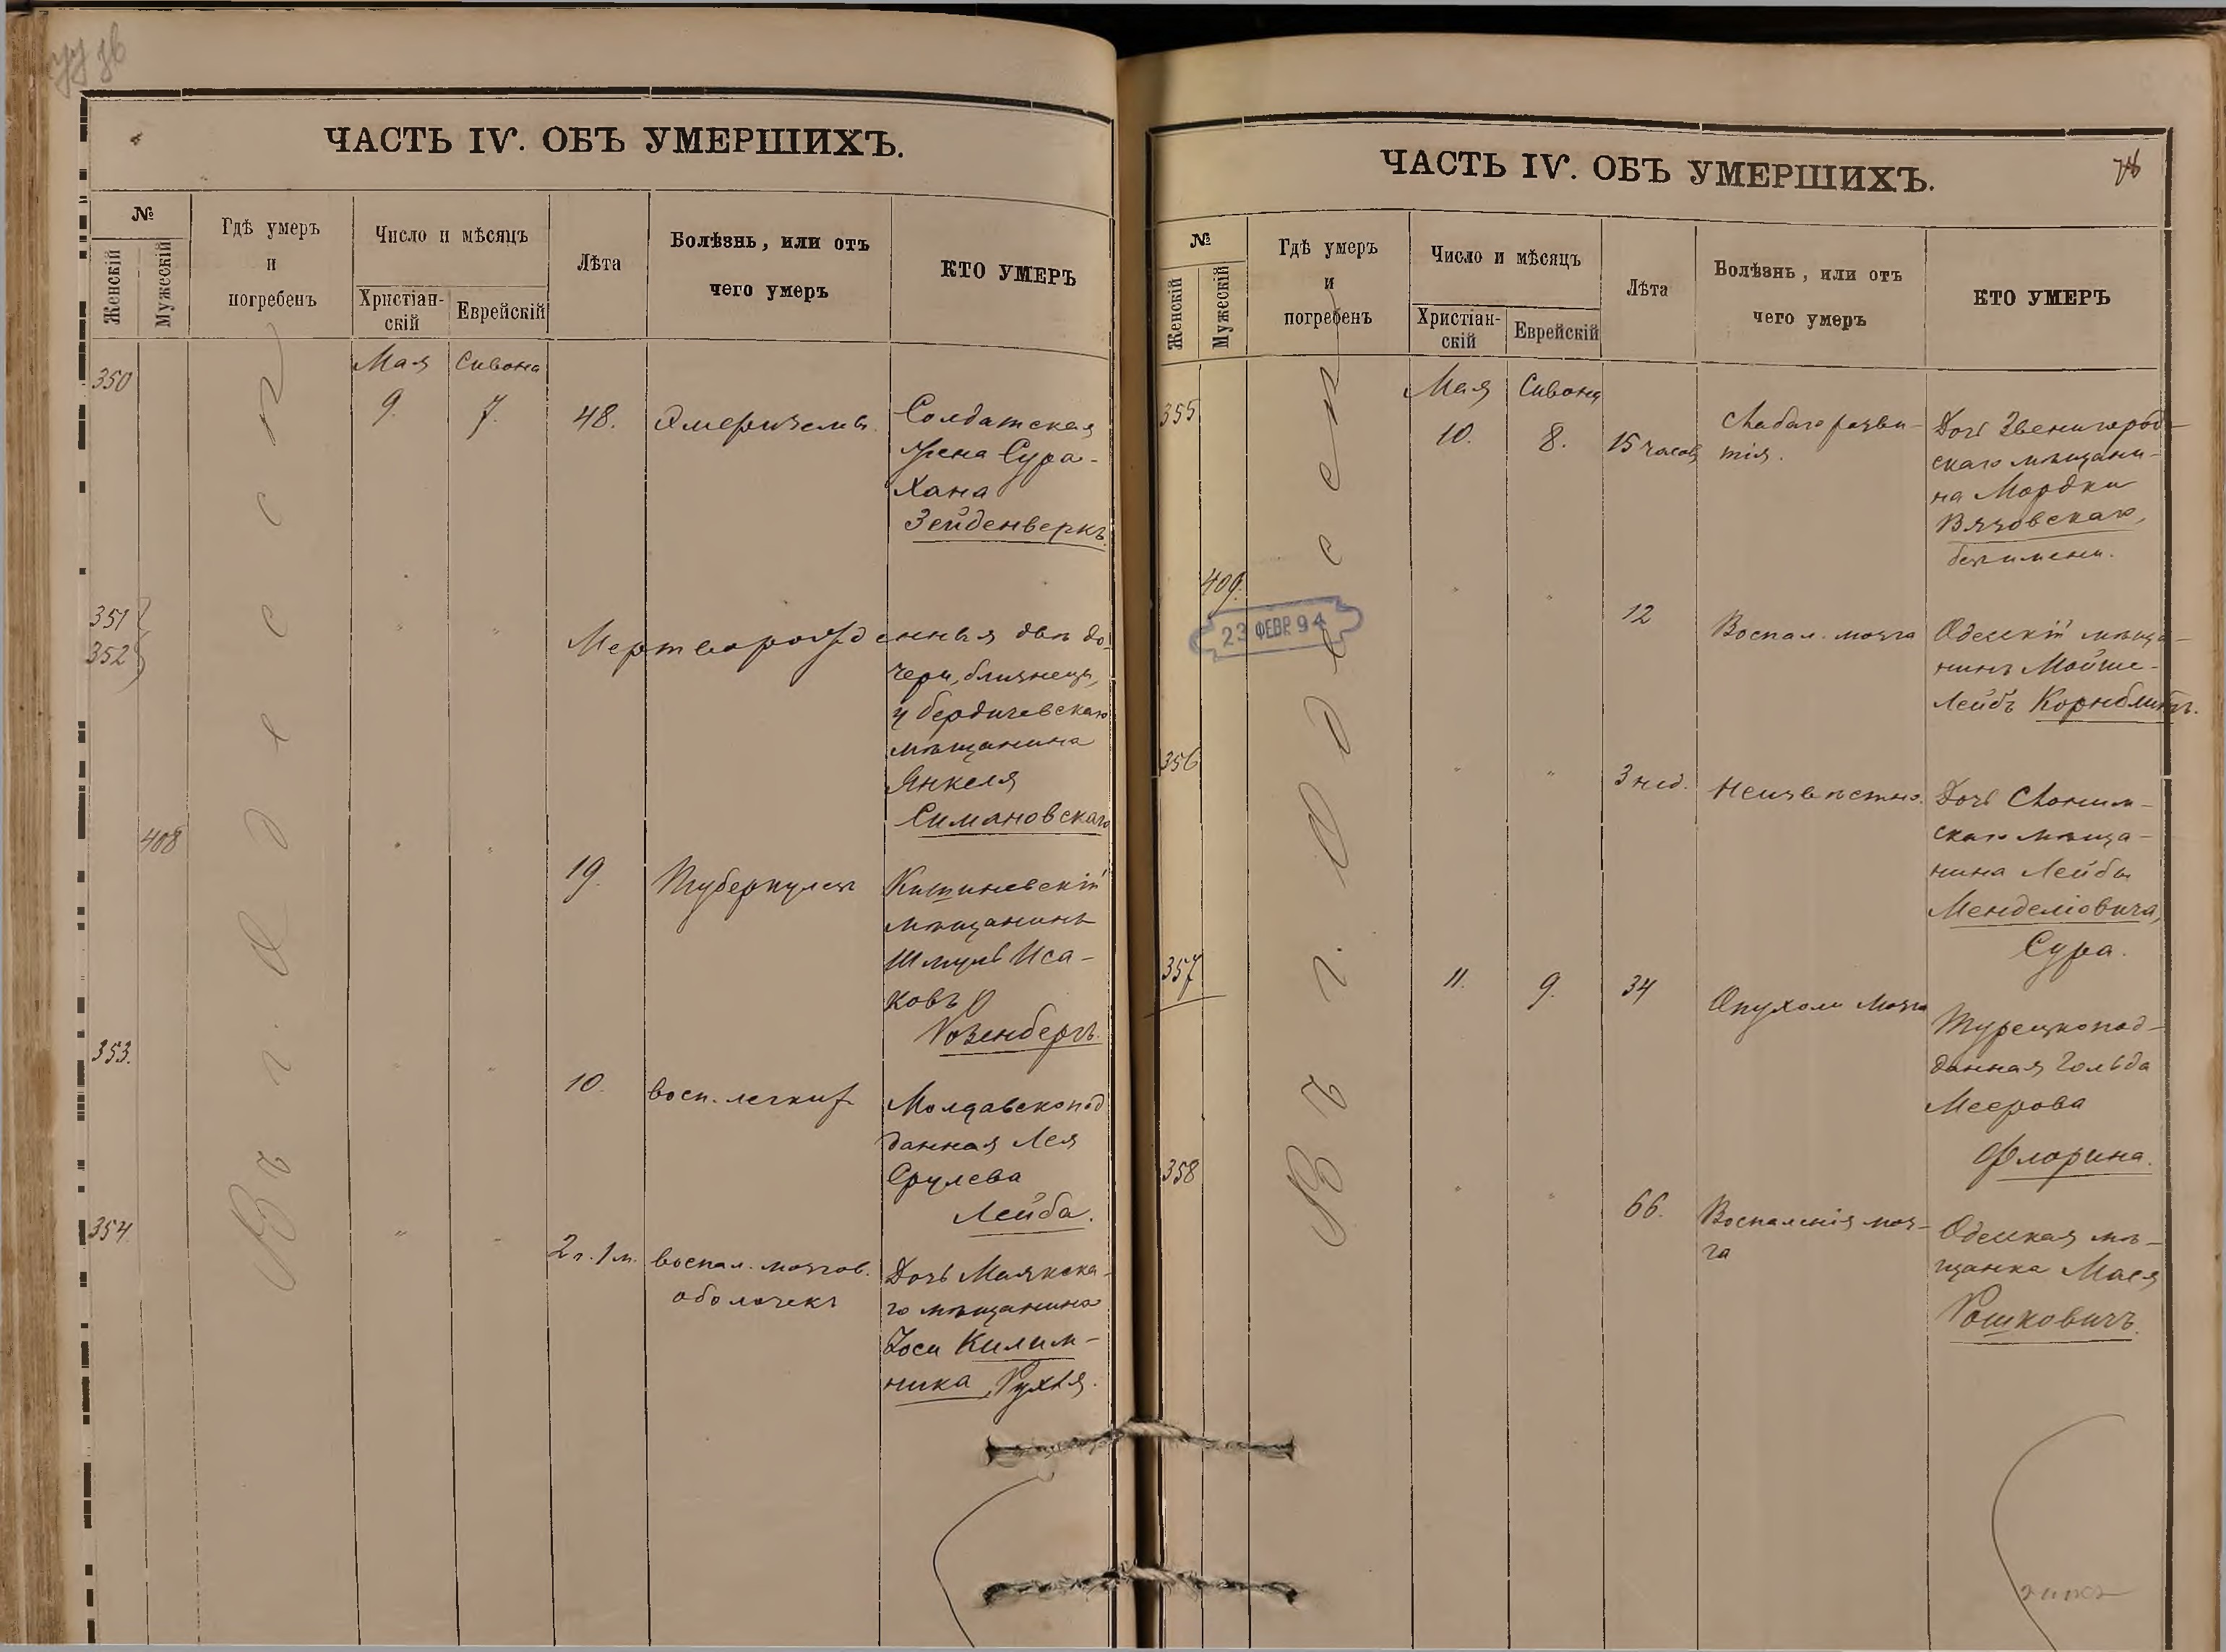 ЧАСТЬ IV. ОБЪ УМЕРШИХЪ.
№
Женскій
Мужескій
Гдѣ умеръ
и
погребенъ
Число и мѣсяцъ
Христіан-
скій
Еврейскій
Лѣта
Болѣзнь, или отъ
чего умеръ
КТО УМЕРЪ
Въ г. Одессѣ
Мая Сивона
350
9. 7. 48.
Солдатская
жена Сура-
Хана
Зейденверкъ.
351
352
" "
Мертворожденныя двѣ до-
чери, близнецы,
у бердичевскаго
мѣщанина
Янкеля
Симановскаго
408
" "
19. Туберкулезъ Кишиневскій
мѣщанинъ
Шмуль Иса-
ковъ
Розенбергъ.
353.
" "
10. восп. легкихъ Молдавскопод
данная Лея
Срулева
Лейба.
354
" "
2 г. 1 м. воспал. мозгов. Дочь Маякска-
оболочекъ го мѣщанина
Іоси Килим-
ника, Рухля.
ЧАСТЬ IV. ОБЪ УМЕРШИХЪ.
№
Женскій
Мужескій
Гдѣ умеръ
и
погребенъ
Число и мѣсяцъ
Христіан-
скій
Еврейскій
Лѣта
Болѣзнь, или отъ
чего умеръ
КТО УМЕРЪ
Въ г. Одессѣ
Мая Сивона
355
10. 8. 15 часовъ
Слабаго разви-
тія.
Дочь Звенигород-
скаго мѣщани-
на Мордки
Вязовскаго,
безъ имени.
409.
23 ФЕВР 94
" "
12 Воспал. мозга Одесскій мѣща-
нинъ Мойше-
Лейбъ Корнблитъ.
356
" "
3 нед. Неизвѣстно. Дочь Слоним-
скаго мѣща-
нина Лейбы
Менделіовича,
Сура.
357
11. 9. 34 Опухоли мозга
Турецкопод-
данная Гольда
Меерова
Флорина.
358
" "
66. Воспаленія моз-
га
Одесская мѣ-
щанка Мася
Рошковичъ.